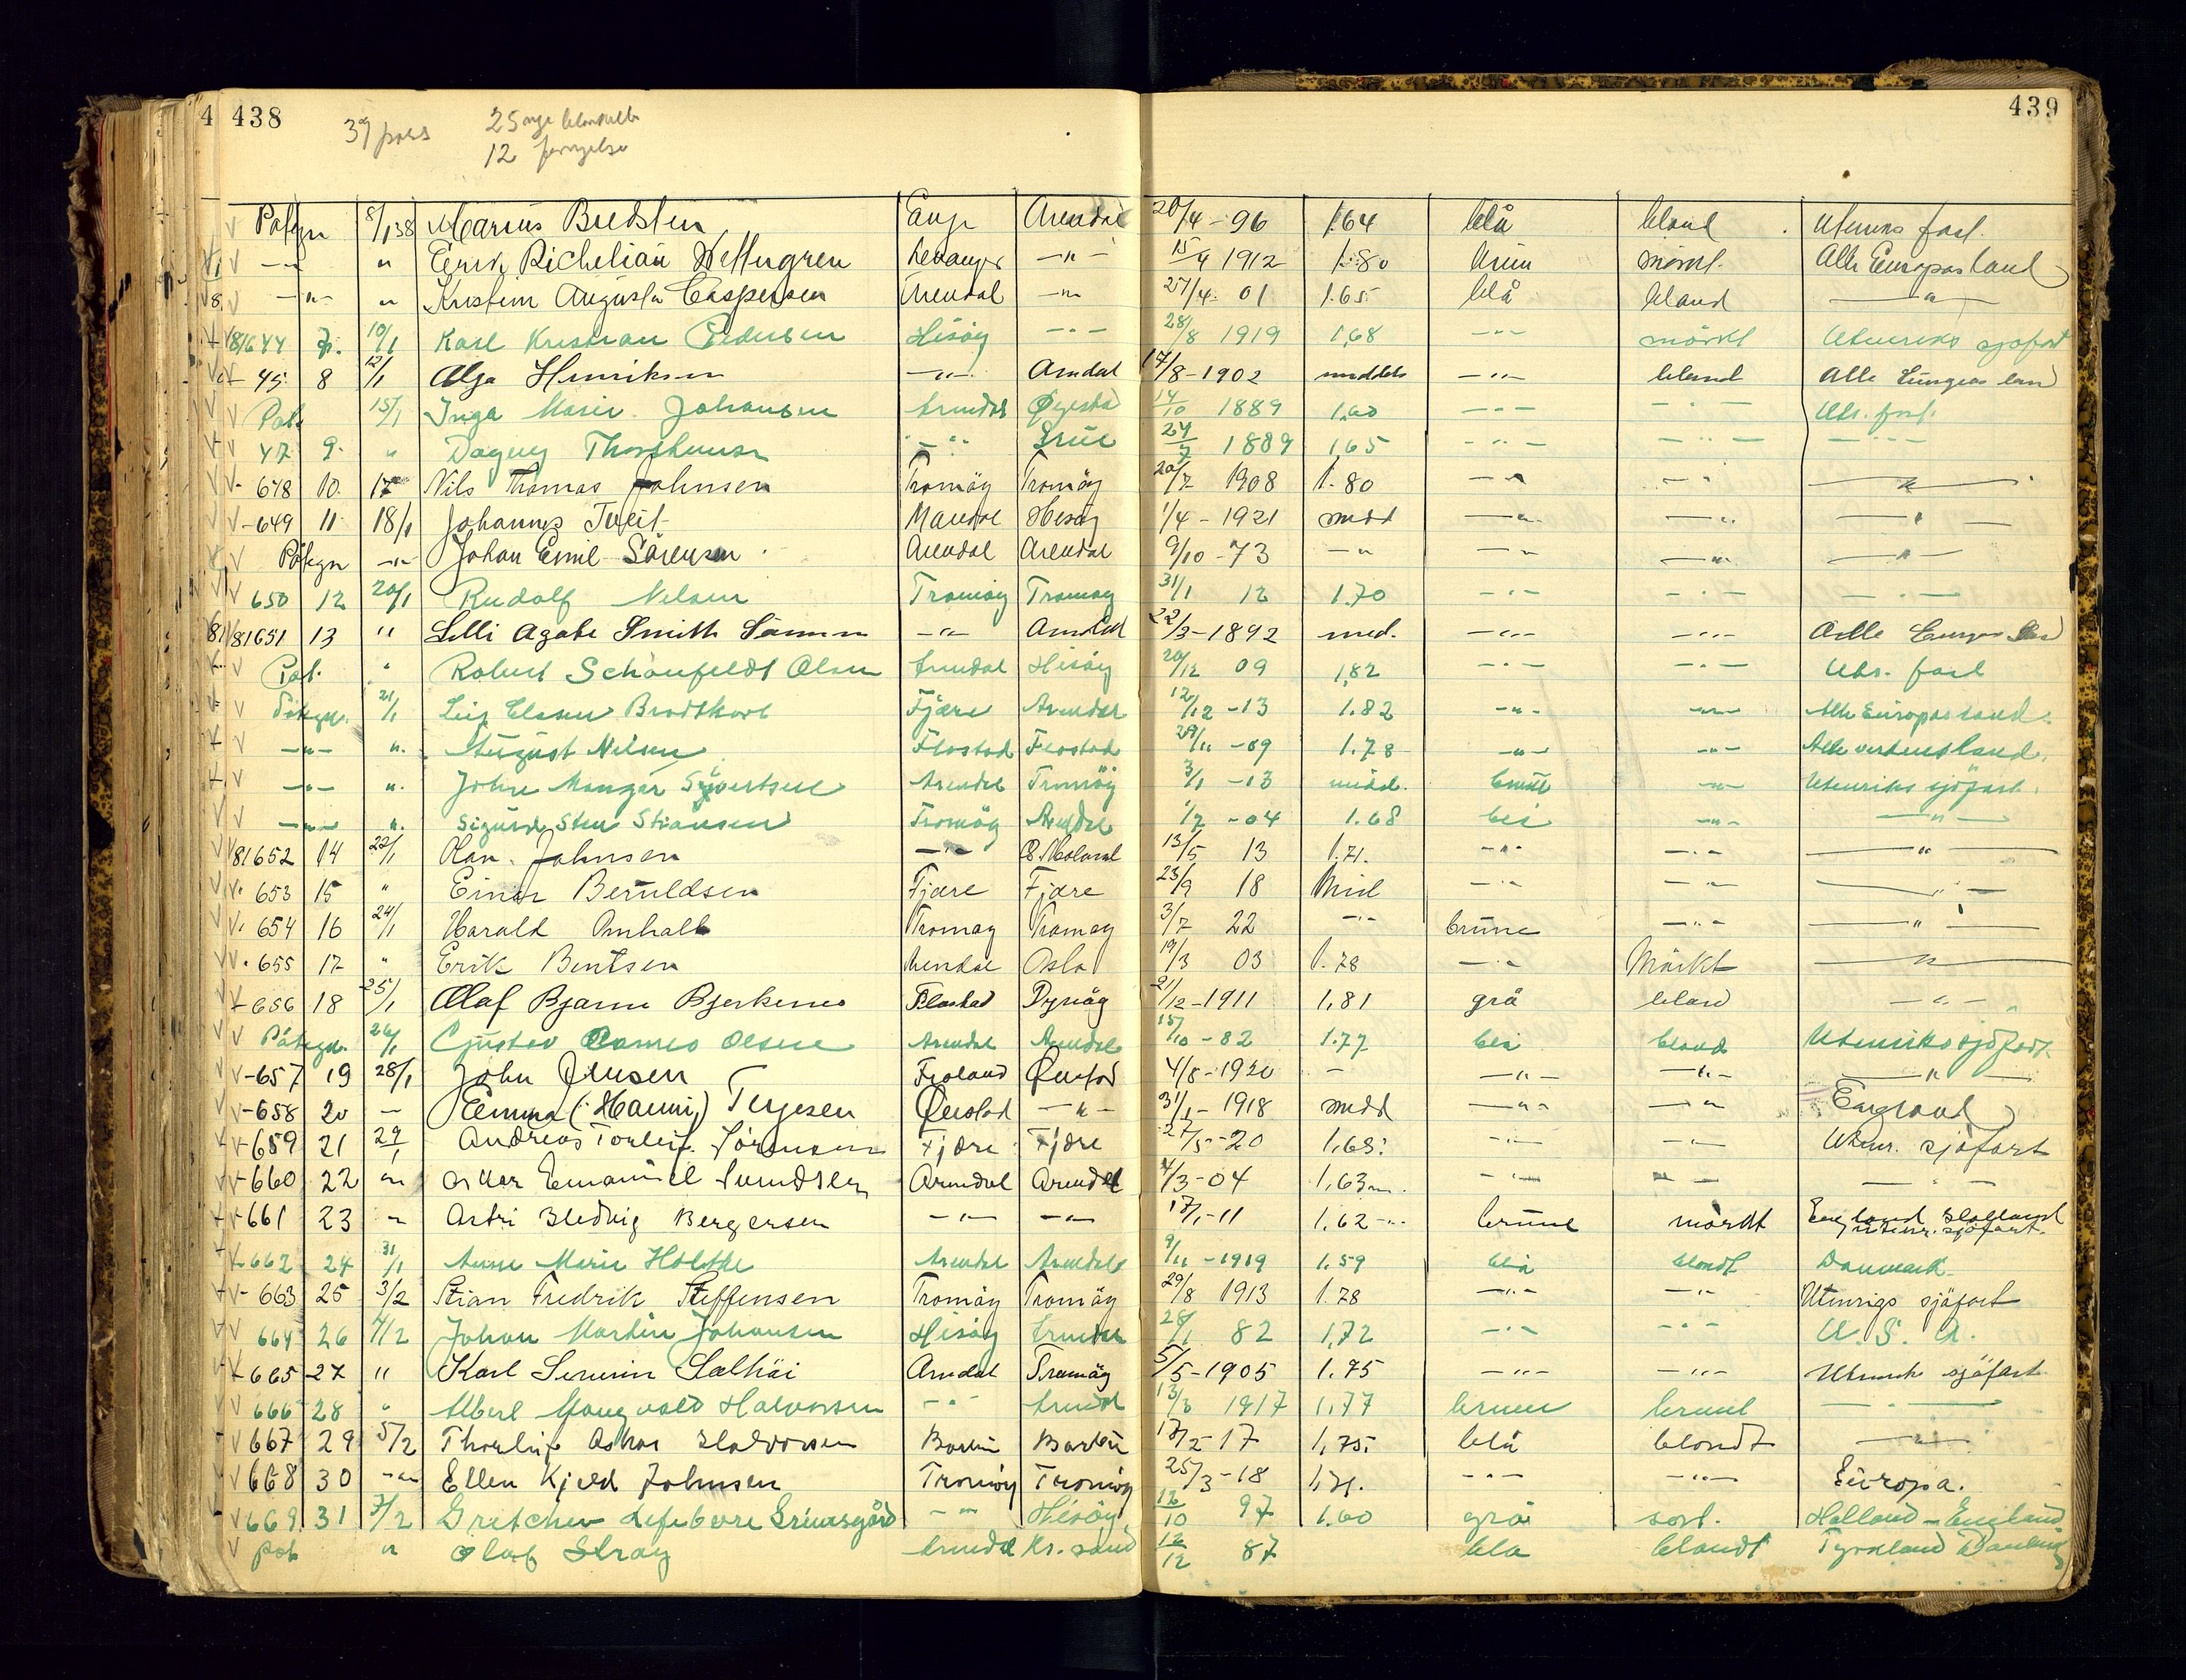 438
439
39 pass 25
12 fornyelse
Påtegn 8/1 38 Marius Bredsten Arendal 20/4 - 96 1.64 blå blond Utenriks fart
-"- " Erik Richeliáu Wettergren Levanger -"- 15/4 1912 1.80 brun mörkt Alle Europas land
-"- " Kristine Augusta Caspersen Arendal -"- 27/4 01 1.65 blå blond -"-
81644 7. 10/1 Karl Kristian Pedersen Hisöy -"- 28/8 1919 1,68 -"- mörkt Utenriks sjöfart
45 8 12/1 Olga Henriksen -"- Arendal 17/8 - 1902 middels -"- blond Alle Europas land
Påt. 15/1 Inga Marie Johansen Arendal Øyestad 14/10 1889 1,60 -"- -"- Uts. fart
47 9. " Dagny Thorstensen -"- 24/7 1889 1,65 -"- -"- -"-
648 10. 17 Nils Thomas Johnsen Tromöy Tromöy 20/7 1908 1.80 -"- -"- -"-
649 11 18/1 Johannes Tveit Mandal Hisöy 1/4 - 1921 midd -"- -"- -"-
Påtegn -"- Johan Emil Sörensen Arendal Arendal 9/10 - 73 -"- -"- -"- -"-
650 12 20/1 Rudolf Nelsen Tromöy Tromöy 31/1 12 1.70 -"- -"- -"-
81651 13 " Lilli Agate Smith -"- Arendal 22/3 - 1892 med. -"- -"- Alle Europas land
Påt. " Robert Schönfeldt Olsen Arendal Hisöy 20/12 09 1,82 -"- -"- Uts. fart
Påtegn. 21/1 Leif Brodtkorb Fjære Arendal 12/12 - 13 1.82 -"- -"- Alle Europas land.
-"- " August Nilsen Flostad Flostad 29/11 - 09 1.78 -"- -"- Alle verdens land.
-"- " John Mangár Syvertsen Arendal Tromöy 3/1 - 13 midd. brune -"- Utenriks sjöfart.
-"- " Sigurd Sten Stiansen Tromöy Arendal 1/7 - 04 1.68 blå -"- -"-
81652 14 22/1 Johnsen -"- Ø Moland 13/5 13 1.71. -"- -"- -"-
653 15 " Einar Beruldsen Fjære Fjære 23/9 18 Mid -"- -"- -"-
654 16 24/1 Harald Omholt Tromøy Tromøy 3/7 22 -"- brune -"- -"-
655 17 " Erik Bentsen Arendal Oslo 19/3 03 1.78 -"- Mörkt -"-
656 18 25/1 Olaf Bjarne Bjerkenes Flostad Dypvåg 21/12 - 1911 1,81 grå blond -"-
Påtegn. 26/1 Gustav Olsen Arendal Arendal 15/10 - 82 1.77 blå blond Utenriks sjöfart.
657 19 28/1 John Jensen Froland 4/8 - 1920 - -"- -"- -"-
658 20 - Emma (Hanni) Terjesen Øiestad -"- 31/1 - 1918 midd -"- -"- England
659 21 29/1 Andreas Torleif Sörensen Fjære Fjære 27/5 - 20 1,68: -"- -"- Utenr. sjöfart
660 22 " Oskar Emanuel Arendal Arendal 4/3 - 04 1,63 m. -"- -"- -"-
661 23 " Astri Hedvig Bergersen -"- -"- 17/1 - 11 1,62 -"- brune mörkt England Holland utenr. sjöfart.
662 24 31/1 Anne Marie Holthe Arendal Arendal 9/11 - 1919 1.59 blå blondt Danmark
663 25 3/2 Stian Fredrik Steffensen Tromöy Tromöy 29/8 1913 1.78 -"- -"- Utenrigs sjöfart
664 26 4/2 Johan Martin Johansen Hisöy Arendal 28/1 82 1,72 -"- -"- U. S. A.
665 27 " Karl Severin Arendal Tromöy 5/5 - 1905 1.75 -"- -"- Utenriks sjöfart
666 28 " Albert Mangvald Halvorsen -"- Arendal 13/3 1917 1,77 brune brunt -"-
667 29 5/2 Thorleif Oskar Halvorsen Barbu Barbu 17/2 - 17 1,75. blå blondt -"-
668 30 -"- Ellen Kjeld Johnsen Tromöy Tromöy 25/3 - 18 1,71. -"- -"- Europa.
669 31 7/2 Gretchen Lefebvre Grimsgård -"- Hisöy 12/10 97 1.60 grå sort. Holland - England
påt " Olaf Stray Arendal Kr. sand 12/12 87 blå blondt Tyskland